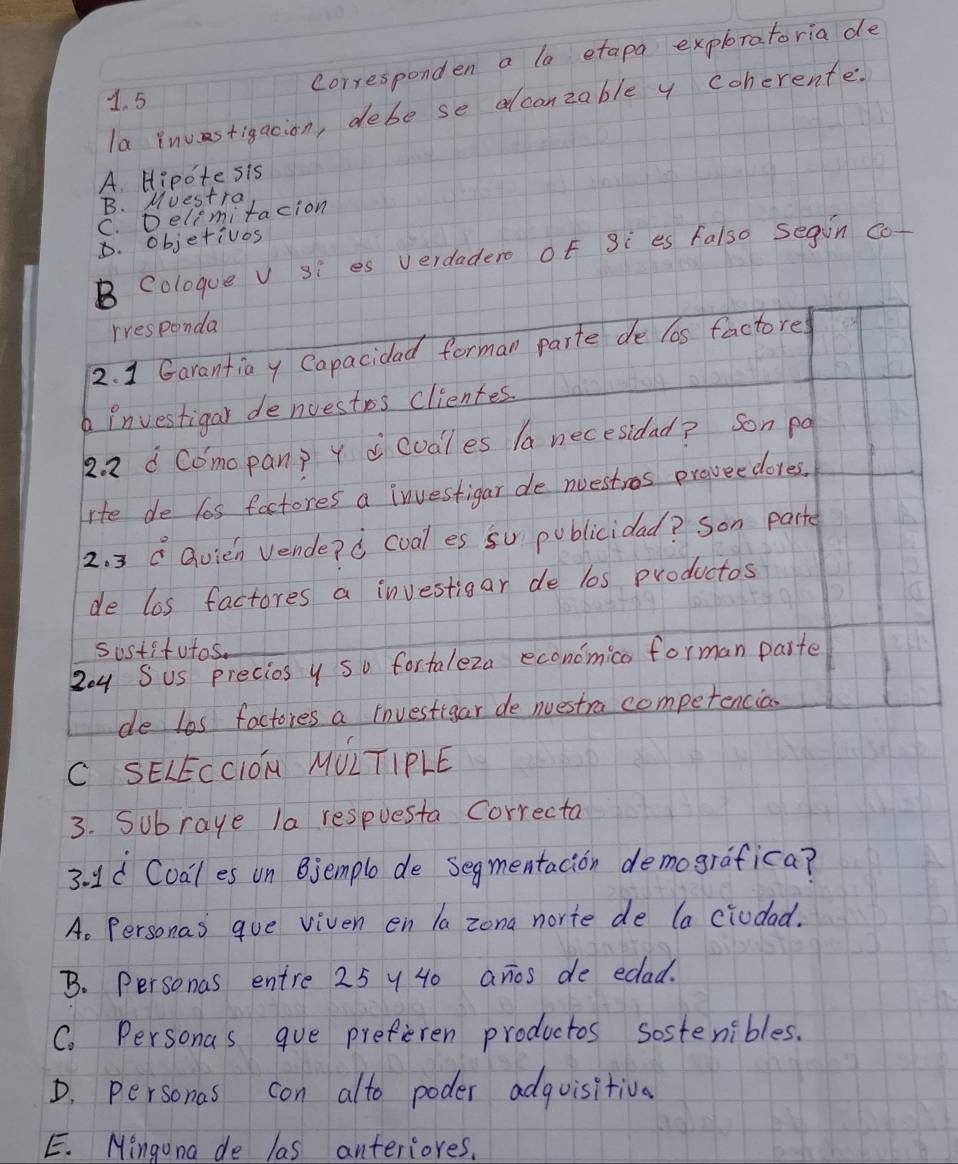 1.5 corresponden a la etapa exploratoria de
la investigacion, debe se alcanzable y coherente.
A. Hipótesis
B. Muestra
C. Delimitacion
D. objetivos
B Coloque V si es verdadero o F si es falso según co-
rresponda
2.1 Garantia y Capacidad forman parte de los factores
a investigar de nuestros clientes.
2.2 ¿Cómo pan? y ¿cuál es la necesidad? Son pa
rte de los factores a investigar de nuestros proveedores.
2.3 ¿Quién vende? ¿cual es su publicidad? Son parte
de los factores a investigar de los productos
sustitutos.
2.4 Sus precios y su fortaleza económico forman parte
de los factores a investigar de nuestra competencia.
C SELECCIÓN MÚLTIPLE
3. Subraye la respuesta Correcta
3.1 ¿Cuál es un Ejemplo de segmentación demográfica?
A. Personas que viven en la zona norte de la ciudad.
B. Personas entre 25 y 40 años de edad.
C. Personas que prefieren productos sostenibles.
D. Personas con alto poder adquisitiva
E. Ninguna de las anteriores.